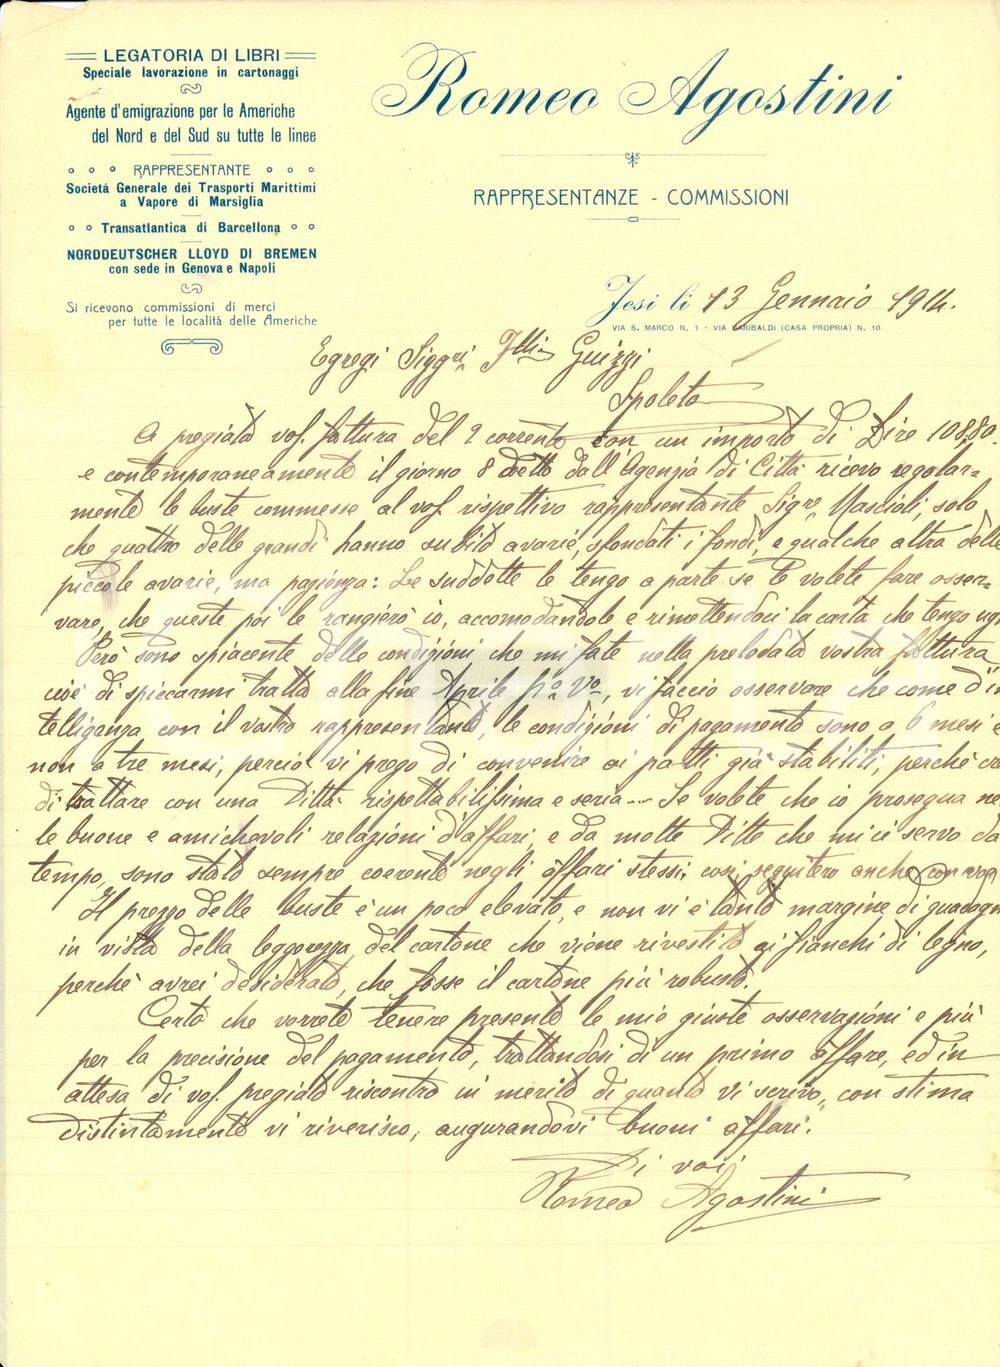 LEGATORIA DI LIBRI
Speciale lavorazione in cartonaggi
Agente d'emigrazione per le Americhe
del Nord e del Sud su tutte le linee
RAPPRESENTANTE
Societá Generale dei Trasporti Marittimi
a Vapore di Marsiglia
Transatlantica di Barcellona
NORDDEUTSCHER LLOYD DI BREMEN
con sede in Genova e Napoli
Si ricevono commissioni di merci
per tutte le località delle Americhe
Romeo Agostini
RAPPRESENTANZE - COMMISSIONI
Jesi li 13 Gennaio 1914.
VIA S. MARCO N. 1 - VIA GARIBALDI (CASA PROPRIA) N. 10
Egregi Siggri Flli Guizzi
Spoleto
A pregiata vos. fattura del 2 corrente con un importo di Lire 108,80.
e contemporaneamente il giorno 8 detto dall'Agenzia di Città ricevo regolar=
mente le buste commesse al vos. rispettivo rappresentante Sigre Mascioli, solo
che quattro delle grandi hanno subito avarie, sfondati i fondi, e qualche altra delle
piccole avarie, ma pazienza: Le suddette le tengo a parte se le volete fare osser-
vare, che queste poi le rangierò io, accomodandole e rimettendoci la carta che tengo
Però sono spiacente delle condizioni che mi fate nella prelodata vostra fattura
cioè di spiccarmi tratta alla fine Aprile pº Vº, vi faccio osservare che come d'in
telligenza con il vostro rappresentante, le condizioni di pagamento sono a 6 mesi e
non a tre mesi, perciò vi prego di convenire ai patti già stabiliti, perchè cre
di trattare con una Ditta rispettabilissima e seria... Se volete che io prosegua ne
le buone e amichevoli relazioni d'affari, e da molte Ditte che mi ci servo da
tempo, sono stato sempre coerente negli affari stessi; così seguitero anche con voi
Il prezzo delle buste è un poco elevato, e non vi è tanto margine di guadagn
in vista della leggerezza del cartone che viene rivestito ai fianchi di legno,
perchè avrei desiderato, che fosse il cartone più robusto.
Certo che vorrete tenere presente le mie giuste osservazioni e più
per la precisione del pagamento, trattandosi di un primo affare, ed in
attesa di vos. pregiato riscontro in merito di quanto vi scrivo, con stima
distintamente vi riverisco, augurandovi buoni affari.
Di voi
Romeo Agostini